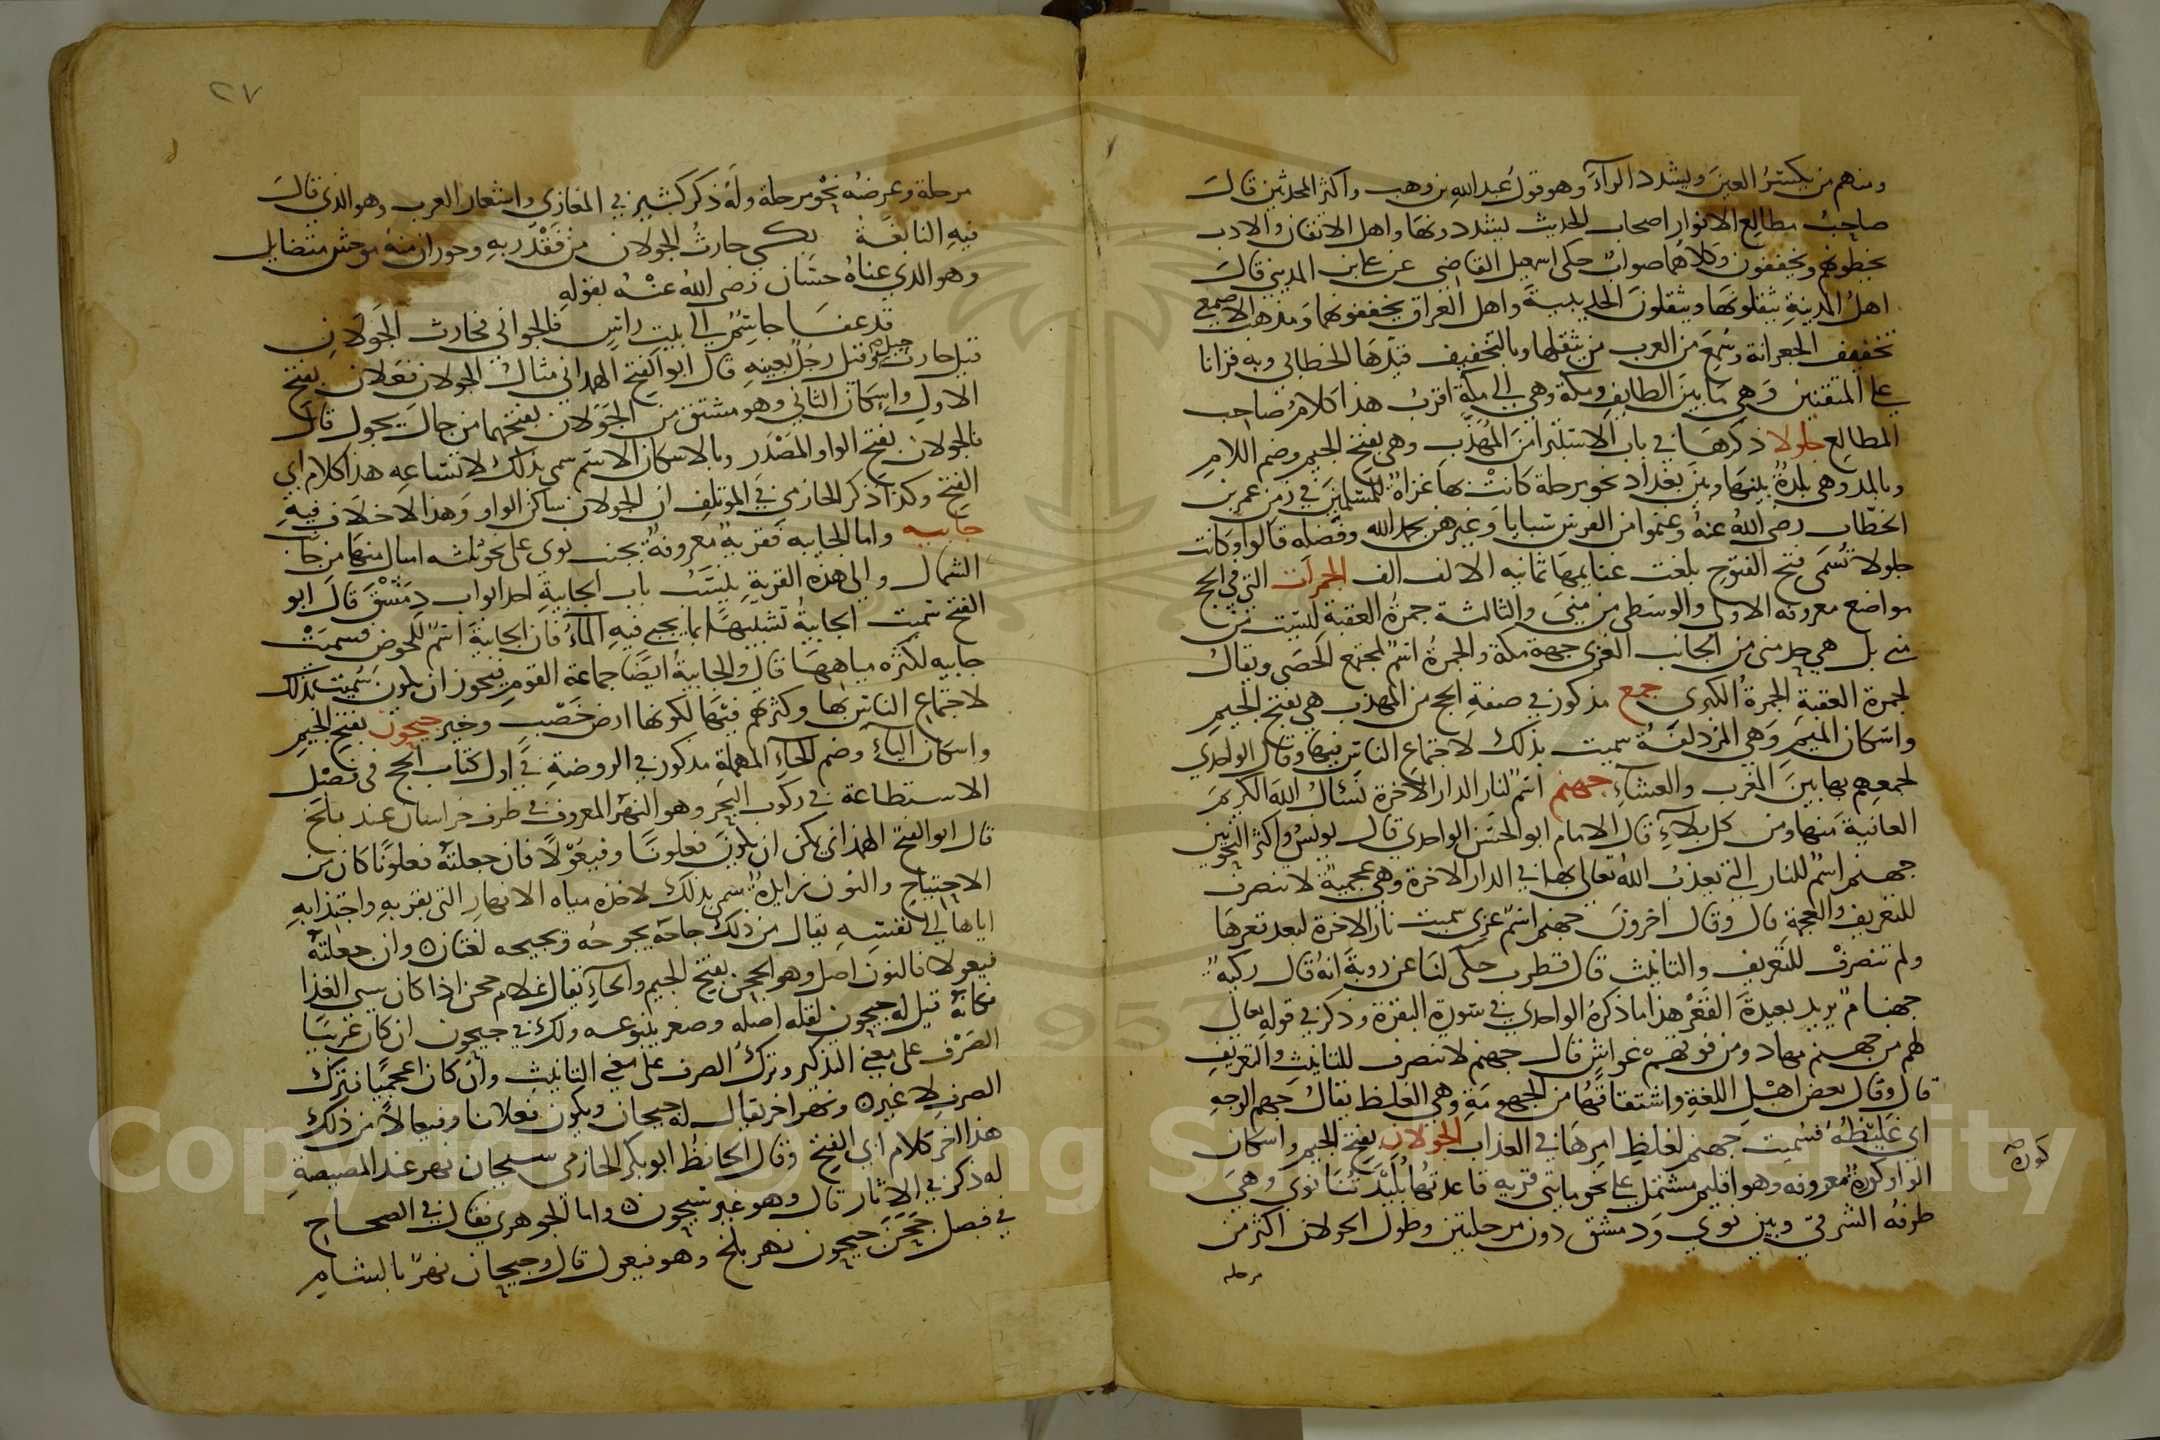 ومنهم من يكسر العين ويشدد الرآء وهو قول عبد الله بن وهب واكثر المحدثين قال
صاحب مطالع الانوار اصحاب الحديث يشددونها واهل الاتقان والادب
يخطونهم ويخففون وكلاهما صواب حكى اسمعيل القاضي عن علي بن المديني قال
اهل المدينة يثقلونها ويثقلون الحديبية واهل العراق يخففونهما ومذهب الاصمعي
تخفيف الجعرانة وسمع من العرب من يثقلها وبالتخفيف قيدها الخطابي وبه قرانا
على المتقنين وهي ما بين الطايف ومكة وهي الى مكة اقرب هذا كلام صاحب
المطالع جلولا ذكرها في باب الاستبراء من المهذب وهي بفتح الجيم وضم اللام
وبالمد وهي بلدة بينها وبين بغداد نحو مرحلة كانت بها غزاة للمسلمين في زمن عمر بن
الخطاب رضى الله عنه وغنموا من الفرس سبايا وغيرهن بحمد الله وفضله قالوا وكانت
جلولا تسمى فتح الفتوح بلغت غنايمها ثمانيه الاف الف الجمرات التي في الحج
مواضع معروفه الاولى والوسطى من منى والثالثة جمرة العقبة ليست من
منى بل هي حد منى من الجانب الغربي جهة مكة والجمرة اسم لمجتمع الحصى ويقال
لجمرة العقبة الجمرة الكبرى جمع مذكور في صفة الحج من المهذب هي بفتح الجيم
واسكان الميم وهي المزدلفة سميت بذلك لاجتماع الناس فيها وقال الواحدي
لجمعهم بها بين المغرب والعشاء جهنم اسم لنار الدار الآخرة نسئال الله الكريم
العافية منها ومن كل بلاء قال الامام ابو الحسن الواحدي قال يونس واكثر النحويين
جهنم اسم للنار التي يعذب الله تعالى بها في الدار الاخرة وهي عجمية لا تنصرف
للتعريف والعجمة قال وقال اخرون جهنم اسم عربي سميت نار الاخرة لبعد قعرها
ولم تنصرف للتعريف والتانيث قال قطرب حكى لنا عن روبة انه قال ركية
جهنام يريد بعيدة القعر هذا ما ذكره الواحدي في سورة البقرة وذكر في قوله تعالى
لهم من جهنم مهاد ومن فوقهم غواش قال جهنم لا تنصرف للتانيث والتعريف
قال وقال بعض اهل اللغة واشتقاقها من الجهومة وهي الغلظ يقال جهم الوجه
اي غليظه فسميت جهنم لغلظ امرها في العذاب الجولان بفتح الجيم واسكان
الواو كورة معروفه وهو اقليم مشتمل على نحو مايتي قريه قاعدتها بلدتنا نوى وهي
طرفه الشرقي وبين نوى ودمشق دون مرحلتين وطول الجولان اكثر من
مرحله
كورة صح
٢٧
مرحلة وعرضه نحو مرحلة وله ذكر كثير في المغازي واشعار العرب وهو الذي قال
فيه النابغة بكى حارث الجولان من فقد ربه وحوران منه موحش متضايل
وهو الذي عناه حسان رضى الله عنه بقوله
قد عفا جاسم الى بيت راس فالجوابي فحارث الجولان
قيل حارث جبل وقيل رجل بعينه قال ابو الفتح الهمداني مثال الجولان فعلان بفتح
الاول واسكان الثاني وهو مشتق من الجولان بفتحهما من جال يجول قال
فالجولان بفتح الواو المصدر وبالاسكان الاسم سمي بذلك لاتساعه هذا كلام ابي
الفتح وكذا ذكر الحازمي في الموتلف ان الجولان ساكن الواو وهذا لا خلاف فيه
جابيه واما الجابيه فقرية معروفة بجنب نوى على نحو ثلثه اميال منها من جانب
الشمال والى هذه القرية ينسب باب الجابية احد ابواب دمشق قال ابو
الفتح سميت الجابية تشبيها بما يجبى فيه المآء فان الجابية اسم للحوض فسميت
جابيه لكثره مياهها قال والجابية ايضا جماعة القوم فيجوز ان يكون سميت بذلك
لاجتماع الناس بها وكثرتهم فيها لكونها ارض خصب وخير جيحون بفتح الجيم
واسكان اليآء وضم الحآء المهملة مذكور في الروضة في اول كتاب الحج في فصل
الاستطاعة في ركوب البحر وهو النهر المعروف في طرف خراسان عند بلخ
قال ابو الفتح الهمداني يمكن ان يكون فعلونا وفيعولا فان جعلته فعلونا كان من
الاجتياح والنون زايدة سمي بذلك لاخذه مياه الانهار التي بقربه واجتذابه
اياها الى نفسه يقال من ذلك جاحه يجوحه ويجيحه لغتان وان جعلته
فيعولا فالنون اصل وهو الجحن بفتح الجيم والحآء يقال غلام جحن اذا كان سيى الغذا
فكانه قيل له جيحون لقله اصله وصغر ينبوعه ولك في جيحون ان كان عربيا
الصرف على معنى التذكير وترك الصرف على معنى التانيث وان كان اعجميا فترك
الصرف لا غير ونهر اخر يقال له جيحان ويكون فعلانا وفيعالا من ذلك
هذا اخر كلام ابي الفتح وقال الحافظ ابو بكر الحازمي سيحان نهر عند المصيصة
له ذكر في الاثار قال وهو غير سيحون واما الجوهري فقال في الصحاح
في فصل جحن جيحون نهر بلخ وهو فيعول قال وجيحان نهر بالشام
Copyright © King Saud University
1957